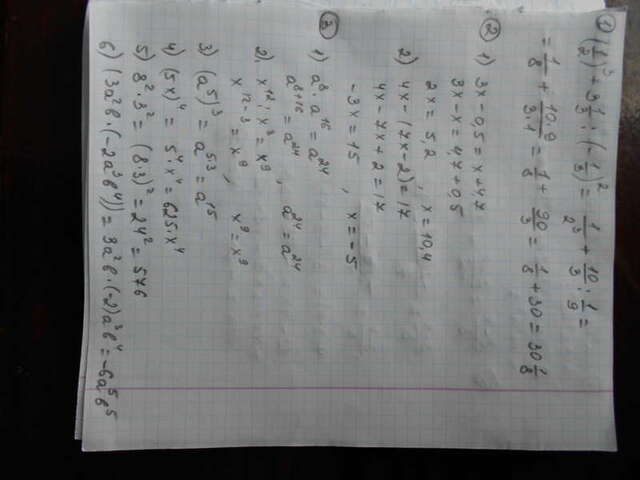 1) (1/2)³ + 3 1/3 : (-1/3)² = 1/2³ + 10/3 : 1/9 =
= 1/8 + 10·9/3·1 = 1/8 + 90/3 = 1/8 + 30 = 30 1/8
2) 1) 3x - 0,5 = x + 4,7
3x - x = 4,7 + 0,5
2x = 5,2 , x = 10,4
2) 4x - (7x - 2) = 17
4x - 7x + 2 = 17
-3x = 15 , x = -5
3)
1) a⁸ · a¹⁶ = a²⁴
a⁸⁺¹⁶ = a²⁴ , a²⁴ = a²⁴
2). x¹² : x³ = x⁹
x¹²⁻³ = x⁹ , x⁹ = x⁹
3) (a⁵)³ = a⁵·³ = a¹⁵
4) (5x)⁴ = 5⁴ · x⁴ = 625·x⁴
5) 8² · 3² = (8·3)² = 24² = 576
6) (3a²b · (-2a³b⁴)) = 3a²b · (-2)a³b⁴ = -6a⁵b⁵